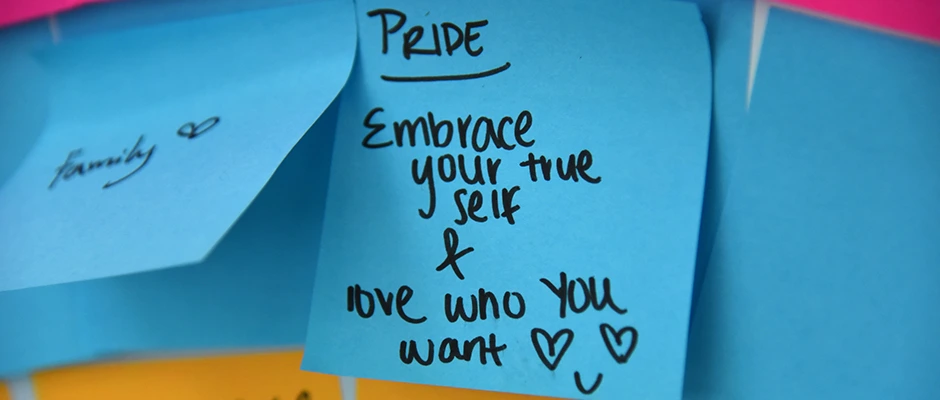 Family
PRIDE
Embrace
your true
self
&
love who you
want